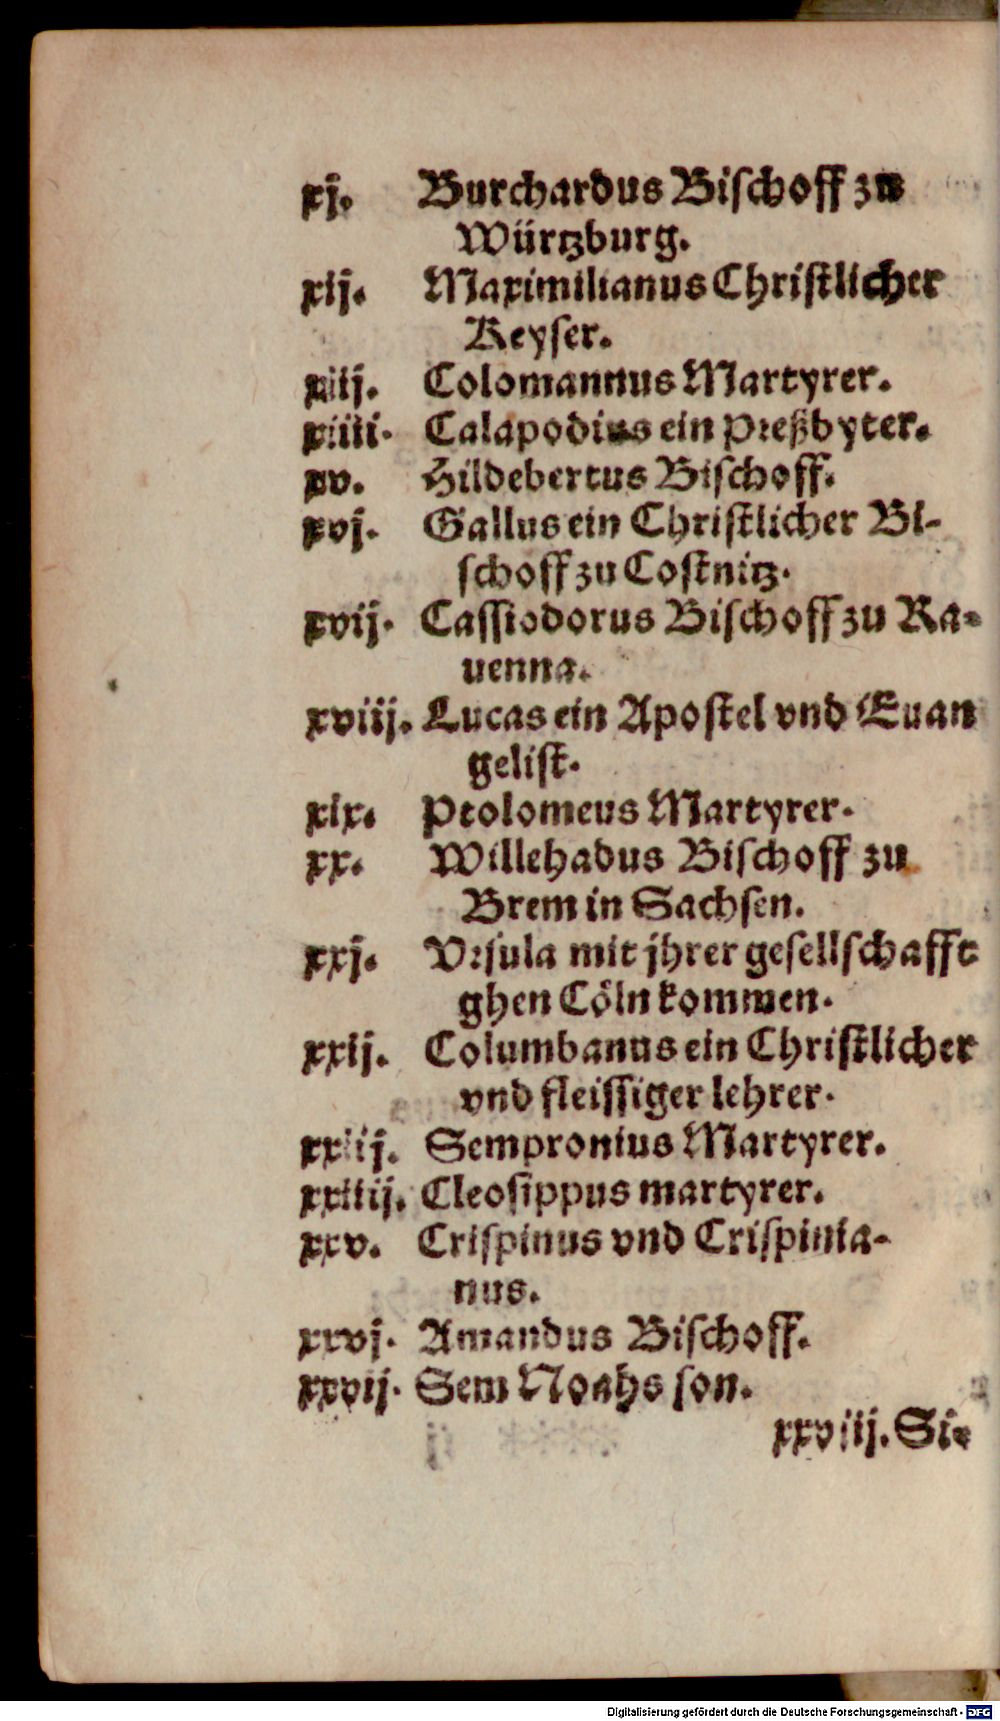 xj. Burchardus Bischoff zu
Würtzburg.
xij. Maximilianus Christlicher
Keyser.
xiij. Colomannus Martyrer.
xiiii. Calapodius ein Preßbyter.
xv. Hildebertus Bischoff.
xvj. Gallus ein Christlicher Bi-
schoff zu Costnitz.
xvij. Cassiodorus Bischoff zu Ra-
uenna.
xviij. Lucas ein Apostel vnd Euan
gelist.
xix. Ptolomeus Martyrer.
xx. Willehadus Bischoff zu
Brem in Sachsen.
xxj. Vrsula mit jhrer gesellschafft
ghen Cöln kommen.
xxij. Columbanus ein Christlicher
vnd fleissiger lehrer.
xxiij. Sempronius Martyrer.
xxiiij. Cleosippus martyrer.
xxv. Crispinus vnd Crispinia-
nus.
xxvj. Amandus Bischoff.
xxvij. Sem Noahs son.
xxviij. Si-
Digitalisierung gefördert durch die Deutsche Forschungsgemeinschaft - DFG